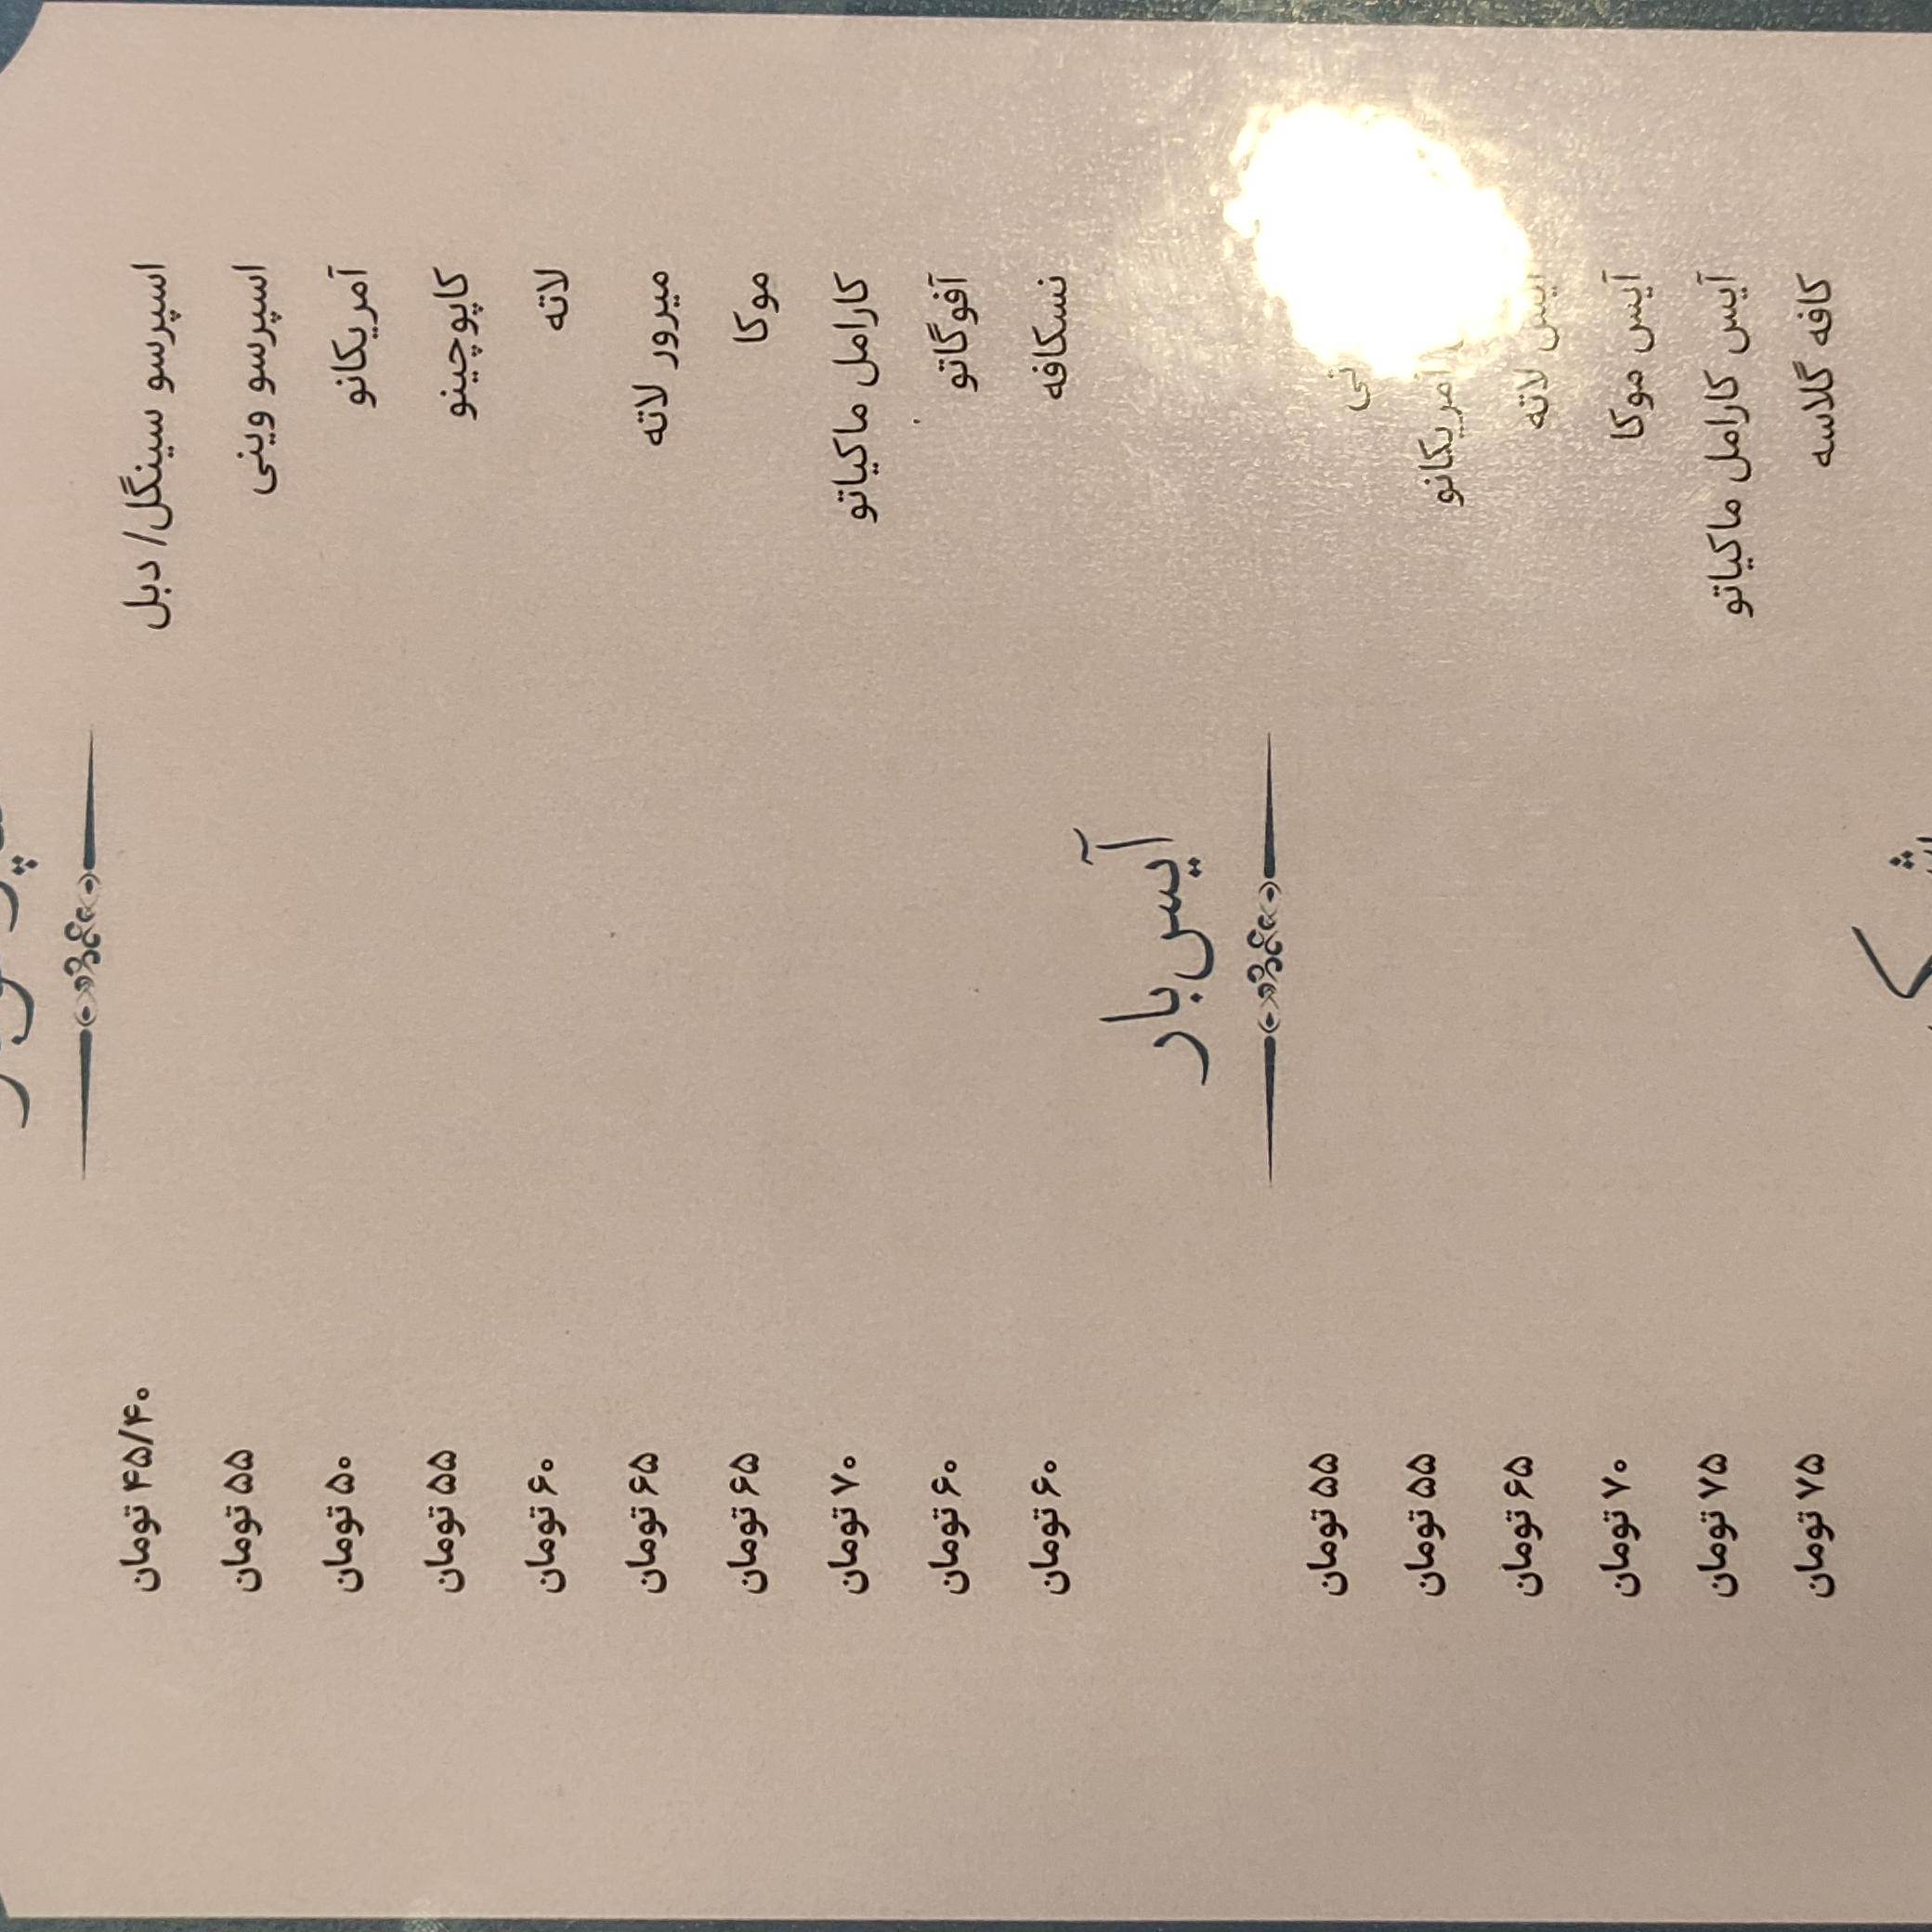 اسپرسو سینگل/ دبل ۴۵/۴۰ تومان
اسپرسو وینی ۵۵ تومان
آمریکانو ۵۰ تومان
کاپوچینو ۵۵ تومان
لاته ۶۰ تومان
میرور لاته ۶۵ تومان
موکا ۶۵ تومان
کارامل ماکیاتو ۷۰ تومان
آفوگاتو ۶۰ تومان
نسکافه ۶۰ تومان
آیس‌بار
۵۵ تومان
آمریکانو ۵۵ تومان
آیس لاته ۶۵ تومان
آیس موکا ۷۰ تومان
آیس کارامل ماکیاتو ۷۵ تومان
کافه گلاسه ۷۵ تومان